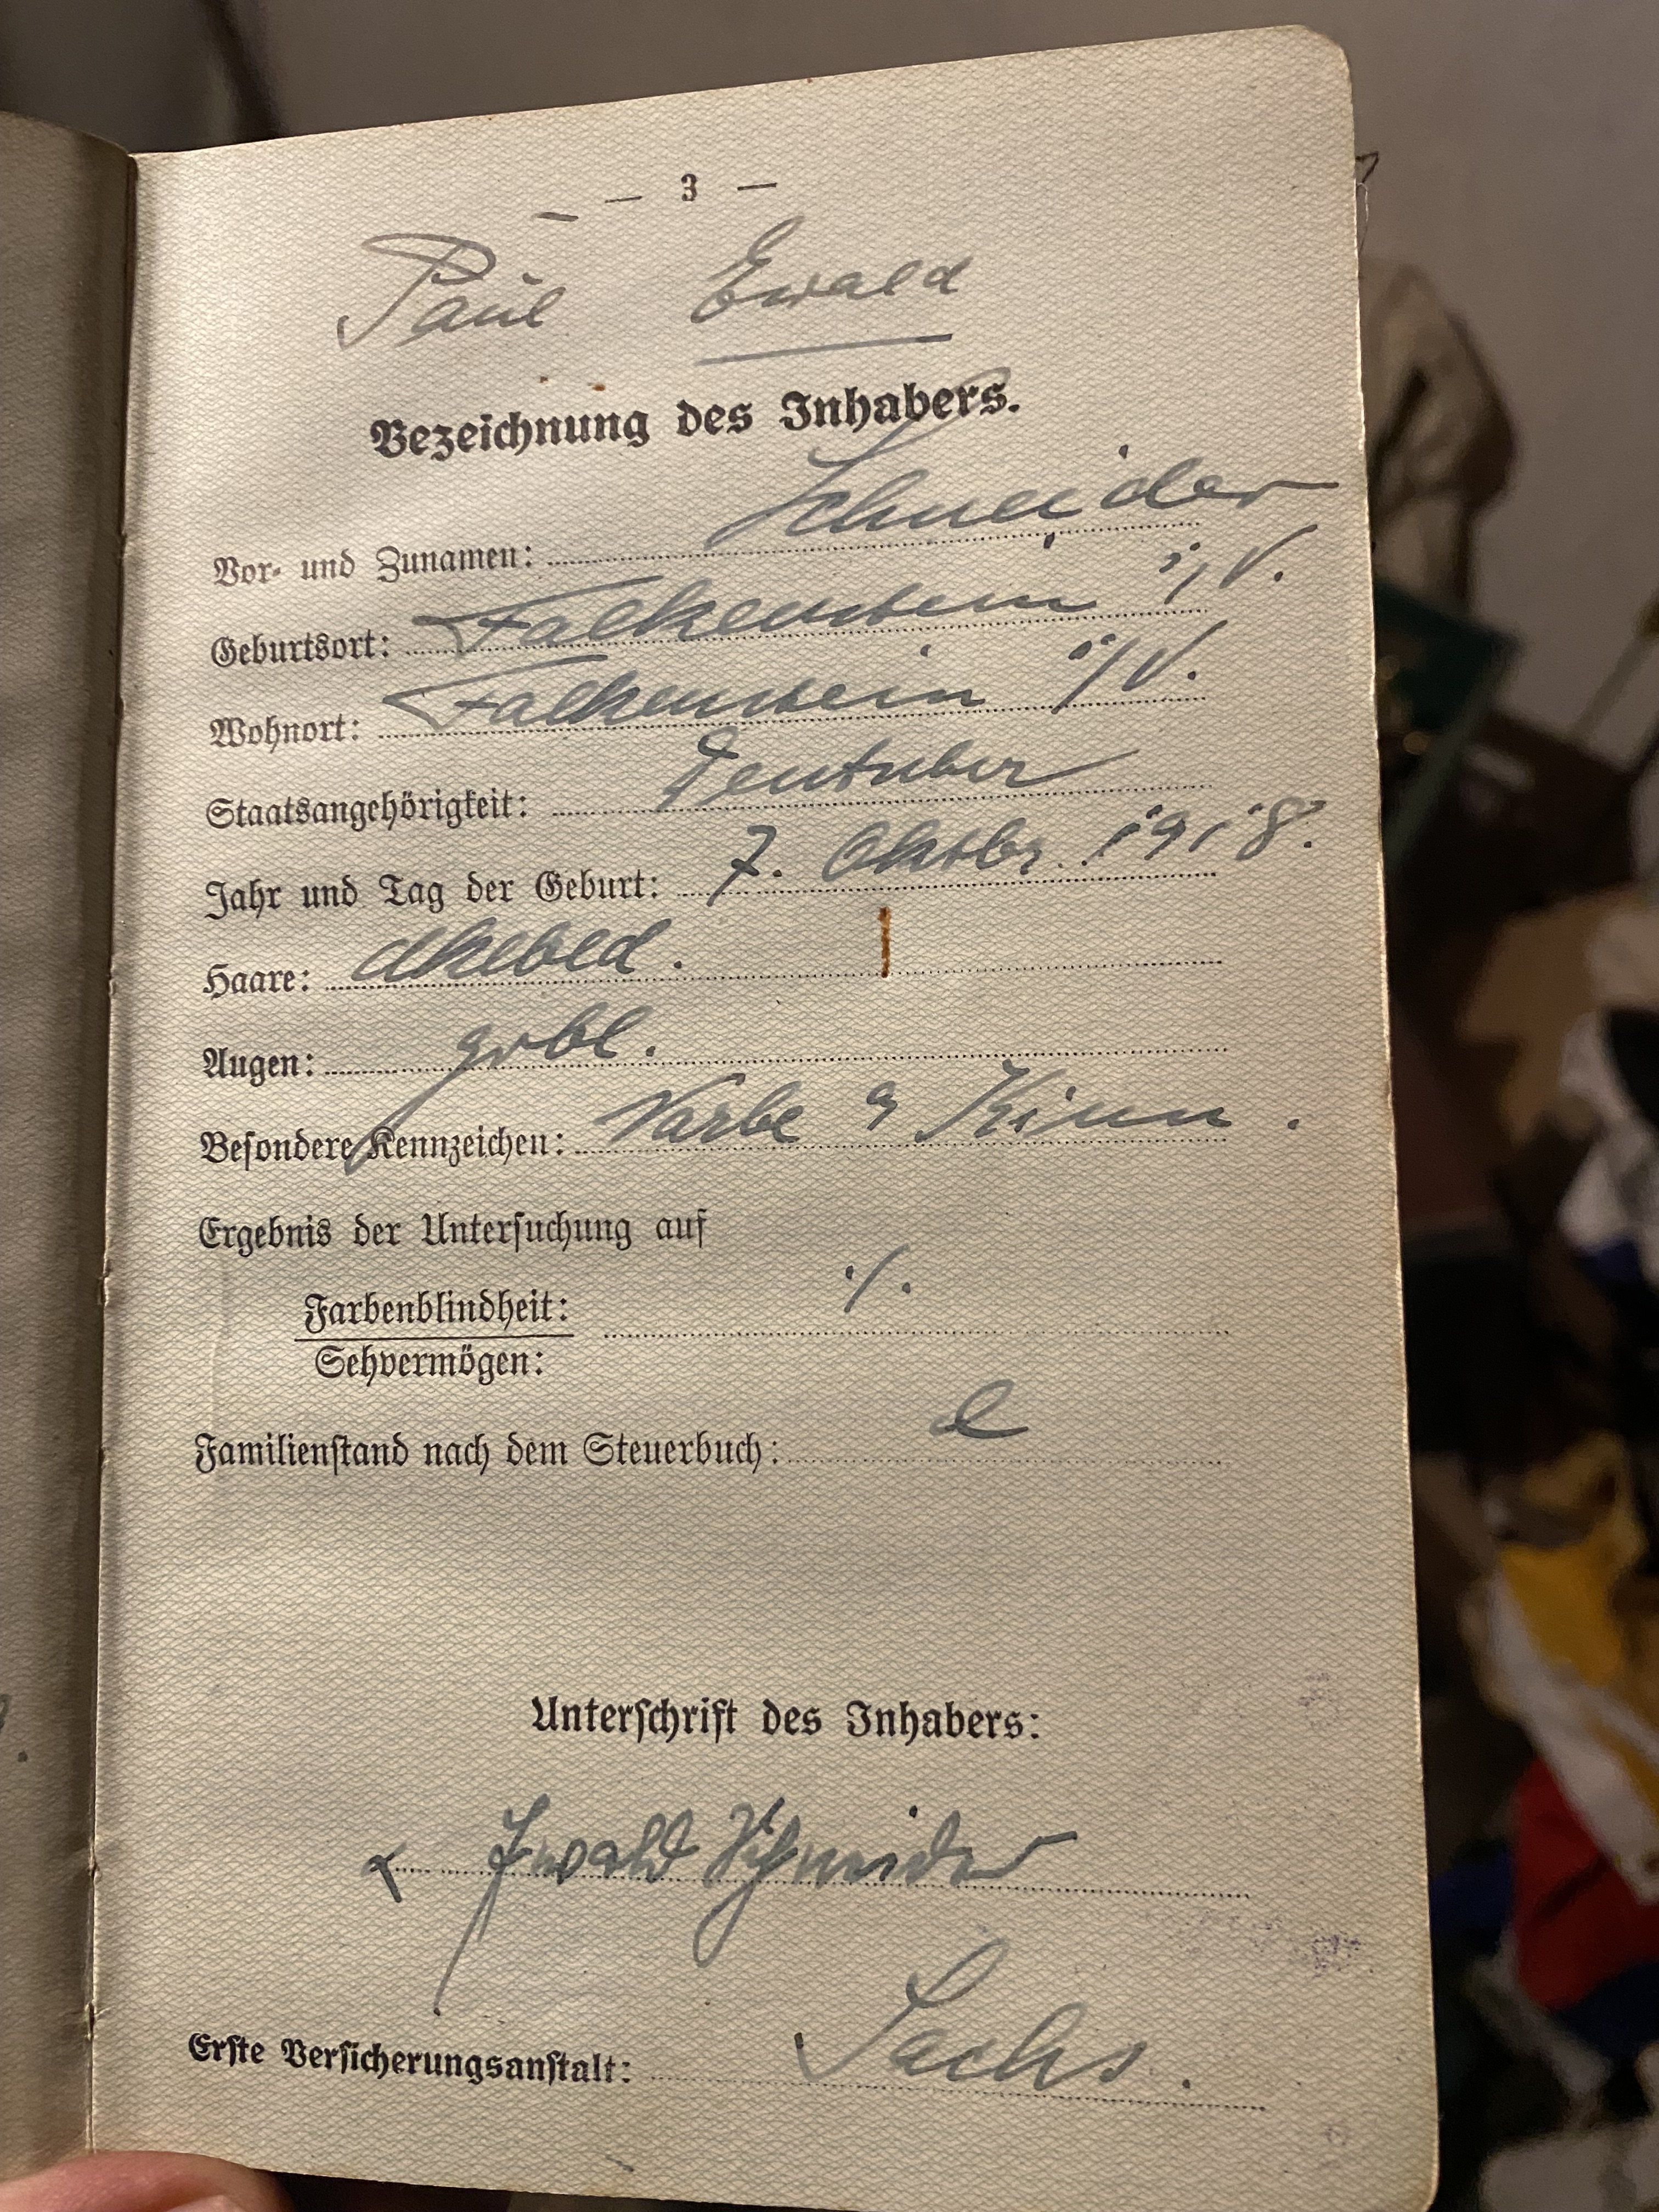 — 3 —
Paul Ewald
Bezeichnung des Inhabers.
Vor- und Zunamen: Schneider
Geburtsort: Falkenstein i/V.
Wohnort: Falkenstein i/V.
Staatsangehörigkeit: Deutscher
Jahr und Tag der Geburt: 7. Oktbr. 1918.
Haare: dklbld.
Augen: grbl.
Besondere Kennzeichen: Narbe a Kinn.
Ergebnis der Untersuchung auf
Farbenblindheit: ./.
Sehvermögen:
Familienstand nach dem Steuerbuch: l
Unterschrift des Inhabers:
Ewald Schneider
Erste Versicherungsanstalt: Sachs.